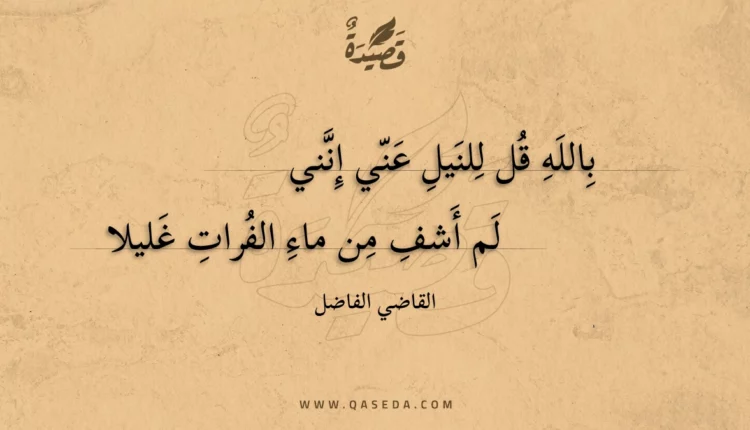 قَصِيدَةٌ
بِاللَهِ قُل لِلنَيلِ عَنّي إِنَّني
لَم أَشفِ مِن ماءِ الفُراتِ غَليلا
القاضي الفاضل
WWW.QASEDA.COM